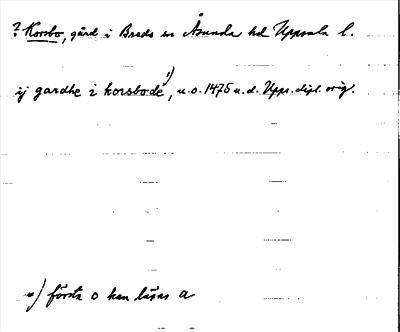 ? Korsbo, gård i Breds sn Åsunda hd Uppsala l.
ij gardhe i korsbode 1), u.o. 1475 u.d. Upps. dipl. orig.
1) första o kan läsas a